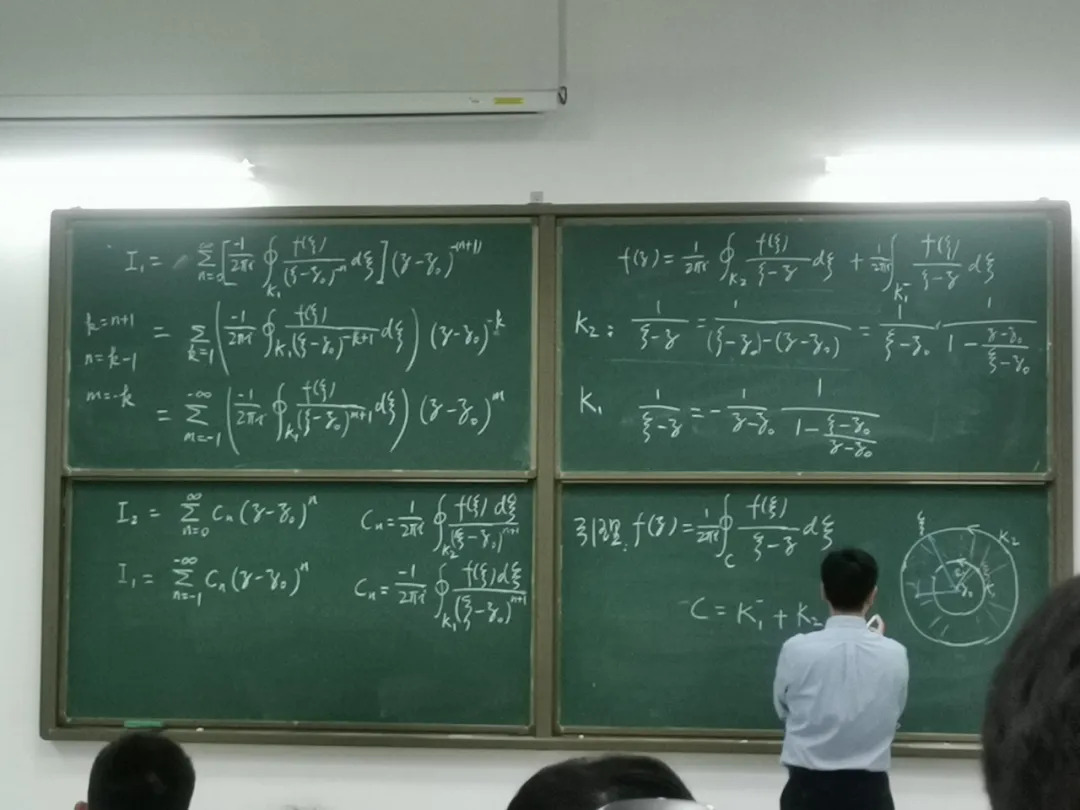 I₁ = ∑_{n=0}^{∞} [ -1/2πi ∮_{K₁} f(ξ)/(ξ-z₀)^{-n} dξ ] (z-z₀)^{-(n+1)}
k=n+1
n=k-1
= ∑_{k=1} ( -1/2πi ∮_{K₁} f(ξ)/(ξ-z₀)^{-k+1} dξ ) (z-z₀)^{-k}
m=-k
= ∑_{m=-1}^{-∞} ( -1/2πi ∮_{K₁} f(ξ)/(ξ-z₀)^{m+1} dξ ) (z-z₀)^{m}
f(z) = 1/2πi ∮_{K₂} f(ξ)/(ξ-z) dξ + 1/2πi ∫_{K₁⁻} f(ξ)/(ξ-z) dξ
K₂: 1/(ξ-z) = 1/((ξ-z₀)-(z-z₀)) = 1/(ξ-z₀) · 1/(1-(z-z₀)/(ξ-z₀))
K₁ 1/(ξ-z) = - 1/(z-z₀) 1/(1-(ξ-z₀)/(z-z₀))
I₂ = ∑_{n=0}^{∞} Cₙ(z-z₀)ⁿ Cₙ = 1/2πi ∮_{K₂} f(ξ)dξ/(ξ-z₀)^{n+1}
I₁ = ∑_{n=-1}^{-∞} Cₙ(z-z₀)ⁿ Cₙ = -1/2πi ∮_{K₁} f(ξ)dξ/(ξ-z₀)^{n+1}
引理: f(z) = 1/2πi ∮_{C} f(ξ)/(ξ-z) dξ
C = K₁⁻ + K₂
ξ
K₂
K₁
z₀